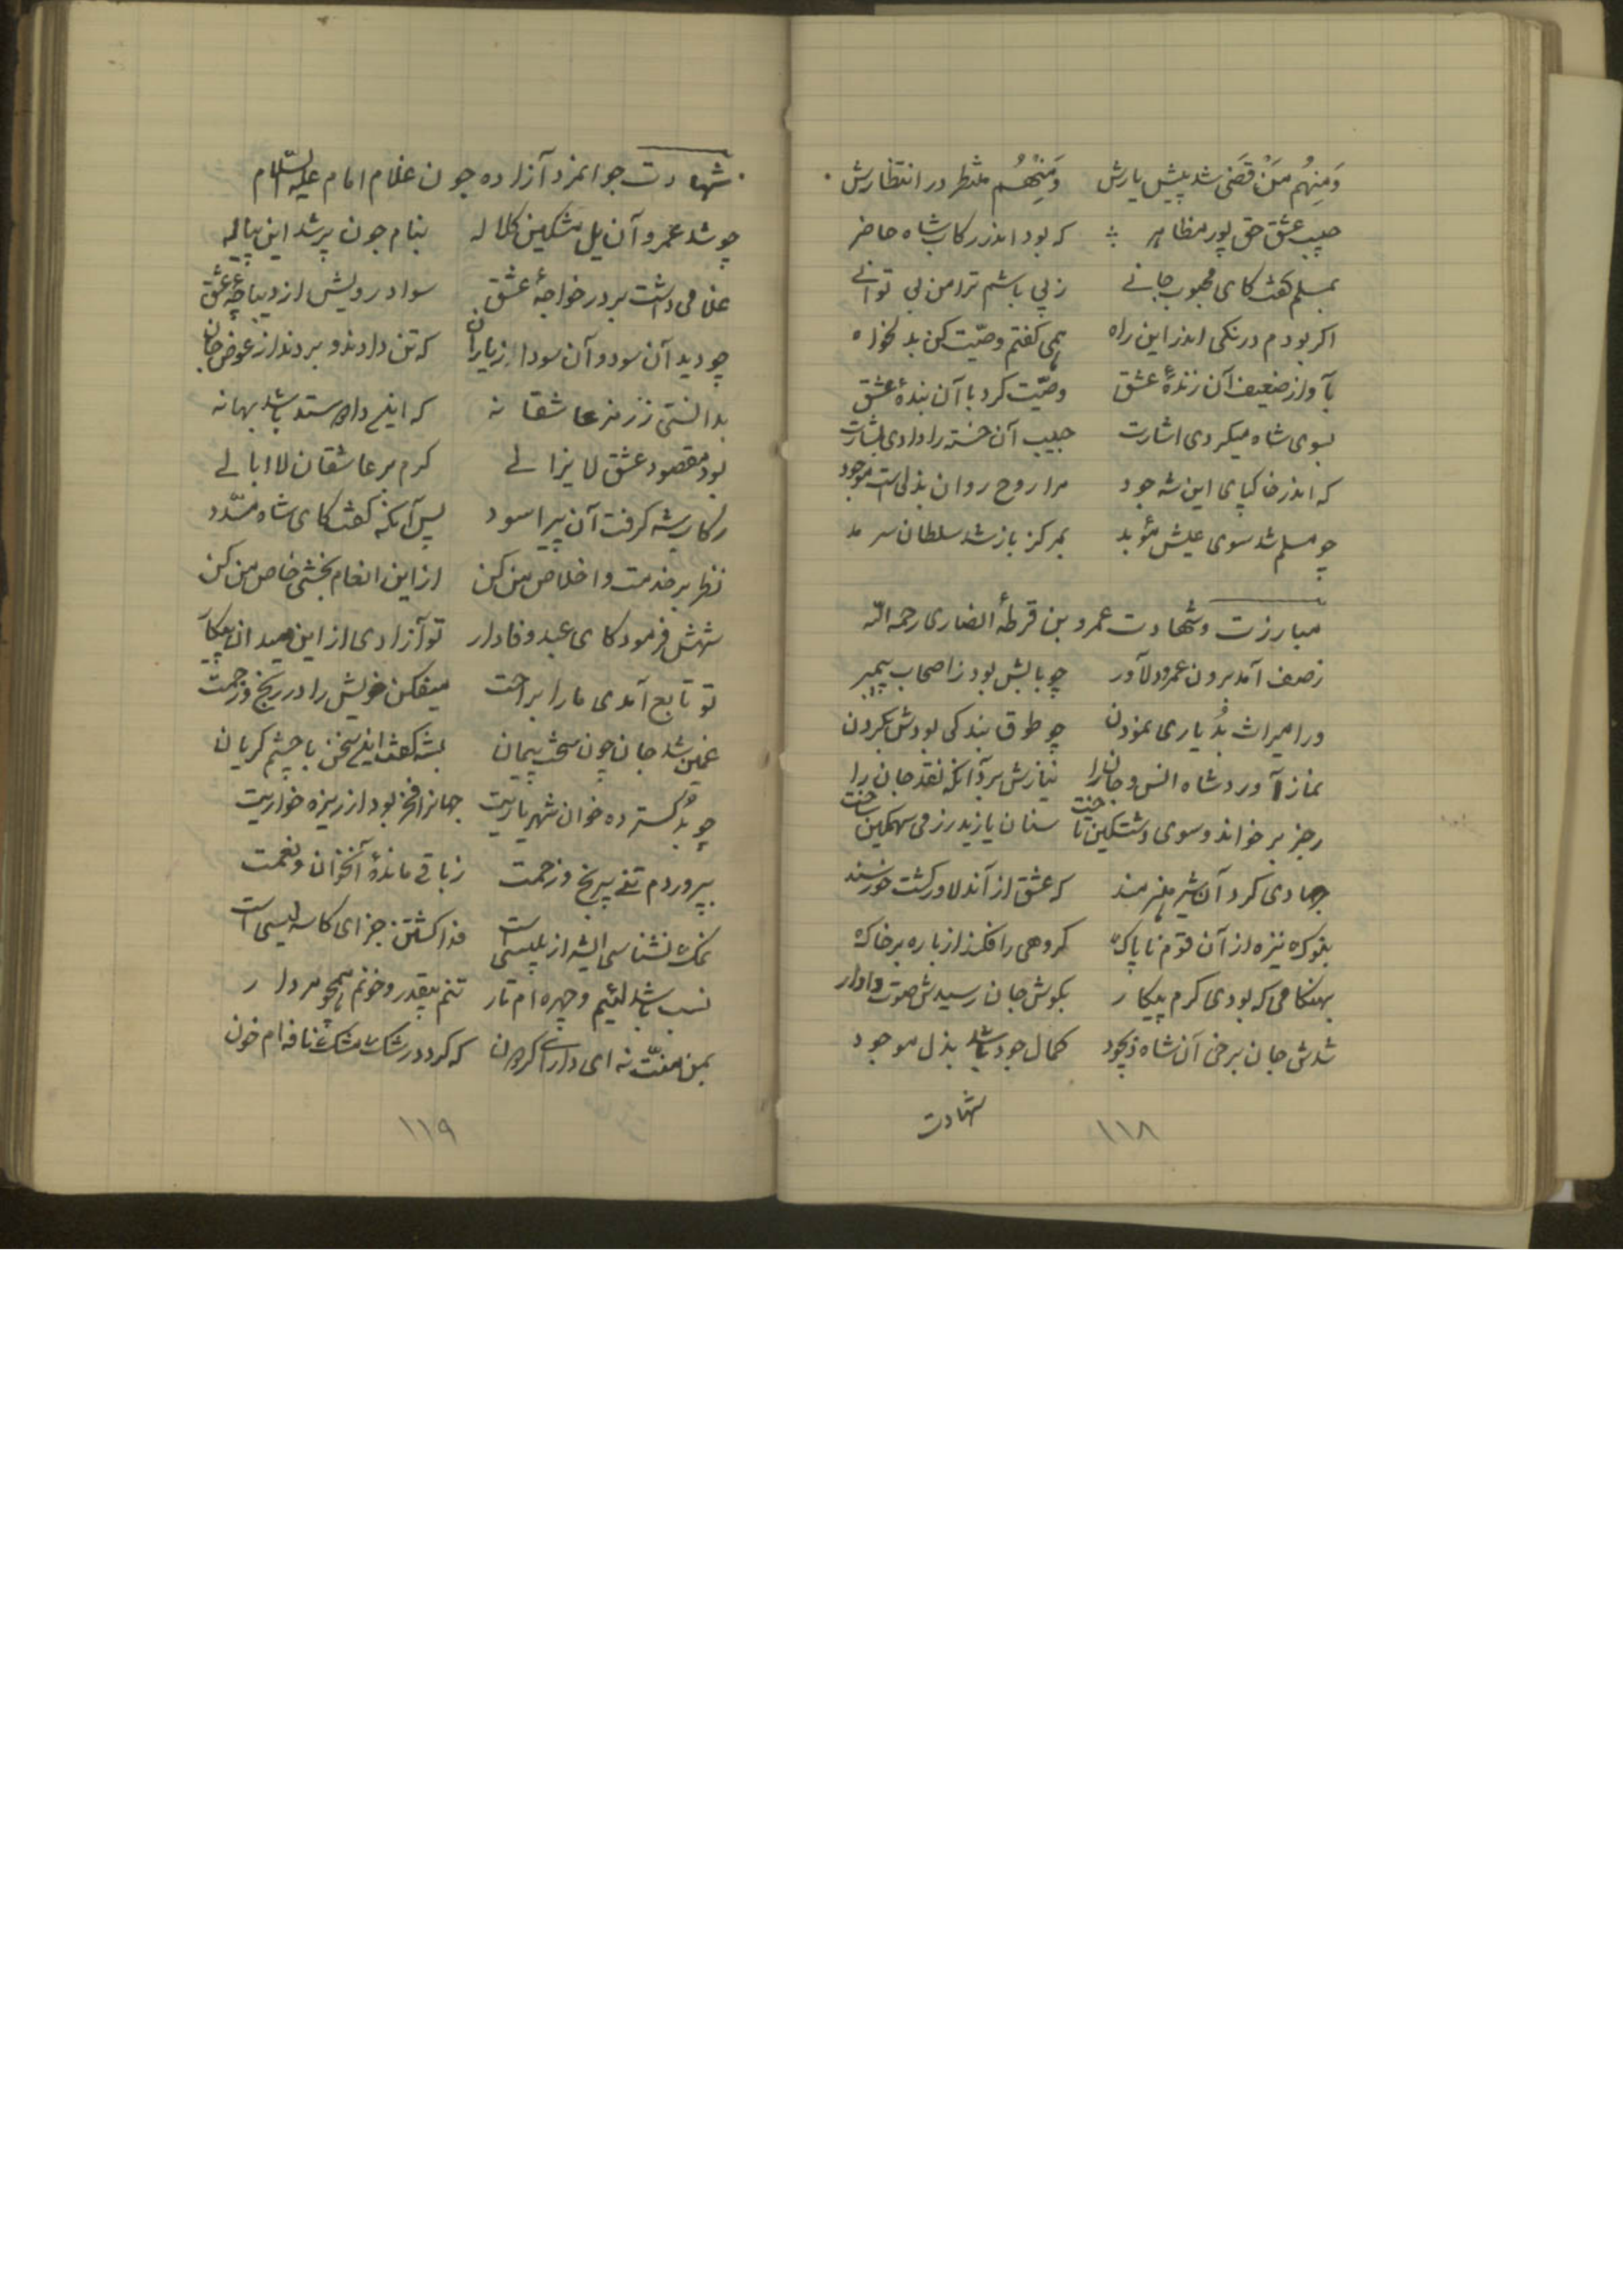 وَمِنهُم مَن قَضی شد پیش یارش    وَمِنهُم منتظر در انتظارش
حبیب عشق حق پور مظاهر    که بود اندر رکاب شاه حاضر
بمسلم گفت کای محبوب جانے    ز پی باشم ترا من بی توانے
اکر بودم درنکی اندر این راه    همی کفتم وصیّت کن بدلخواه
بآواز ضعیف آن زندهٔ عشق    وصیّت کرد با آن بندهٔ عشق
بسوی شاه میکردی اشارت    حبیب آن خسته را دادی بشارت
که اندر خاکپای این شه جود    مرا روح روان بذلی است موجود
چو مسلم شد سوی عیش مؤبد    بمرکز باز شد سلطان سرمد
مبارزت وشهادت عمرو بن قرطهٔ انصاری رحمه الله
ز صف آمد برون عمرو دلآور    چو بابش بود ز اصحاب پیمبر
ورا میراث بُد یاری نمودن    چو طوق بندکی بودش بکردن
نماز آورد شاه انس و جان را    نیازش برد آنکه نقد جان را
رجز بر خواند و سوی دشت کین تاخت    سنان یازید رزمی سهمکین ساخت
جهادی کرد آن شیر هنرمند    که عشق از آن دلاور کشت خورسند
بنوک نیزه از آن قوم ناپاک    کروهی را فکند از باره بر خاک
بهنکامی که بودی کرم پیکار    بکوش جان رسیدش صوت دادار
شدش جان برخی آن شاه ذیجود    کمال جود باشد بذل موجود
شهادت
۱۱۸
شهادت جوانمرد آزاده جون غلام امام علیه السّلام
چو شد عمرو آن یل مشکین کلاله    بنام جون پر شد این پیاله
غلامی داشت بر در خواجهٔ عشق    سواد رویش از دیباچهٔ عشق
چو دید آن سود و آن سودا ز یاران    که تن دادند و بردند از عوض جان
بدانستی ز رمز عاشقانه    که اینے داد وستد باشد بهانه
بود مقصود عشق لا یزالے    کرم بر عاشقان لاابالے
رکاب شه کرفت آن پیر اسود    پس آنکه کفت کای شاه مسدّد
نظر بر خدمت و اخلاص من کن    از این انعام بخشی خاص من کن
شهش فرمود کای عبد وفادار    تو آزادی از این میدان پیکار
تو تابع آمدی ما را براحت    میفکن خویش را در رنج و زحمت
غمین شد جان جون سخت پیمان    بشه کفت اینے سخن با چشم کریان
چو بُد کسترده خوان شهریاریت    جهانرا فخر بود از ریزه خواریت
بپروردم تنے بیرنج و زحمت    ز باقے ماندهٔ آنخوان و نعمت
نمک نشناسی ایشه از پلیسی است    فدا کشتن جزای کاسه لیسی است
نسب باشد لئیم و چهره ام تار    تنم بیقدر و خونم همچو مردار
بمن منّت نه ای دارای کردون    که کردد رشک مشک نافه ام خون
۱۱۹